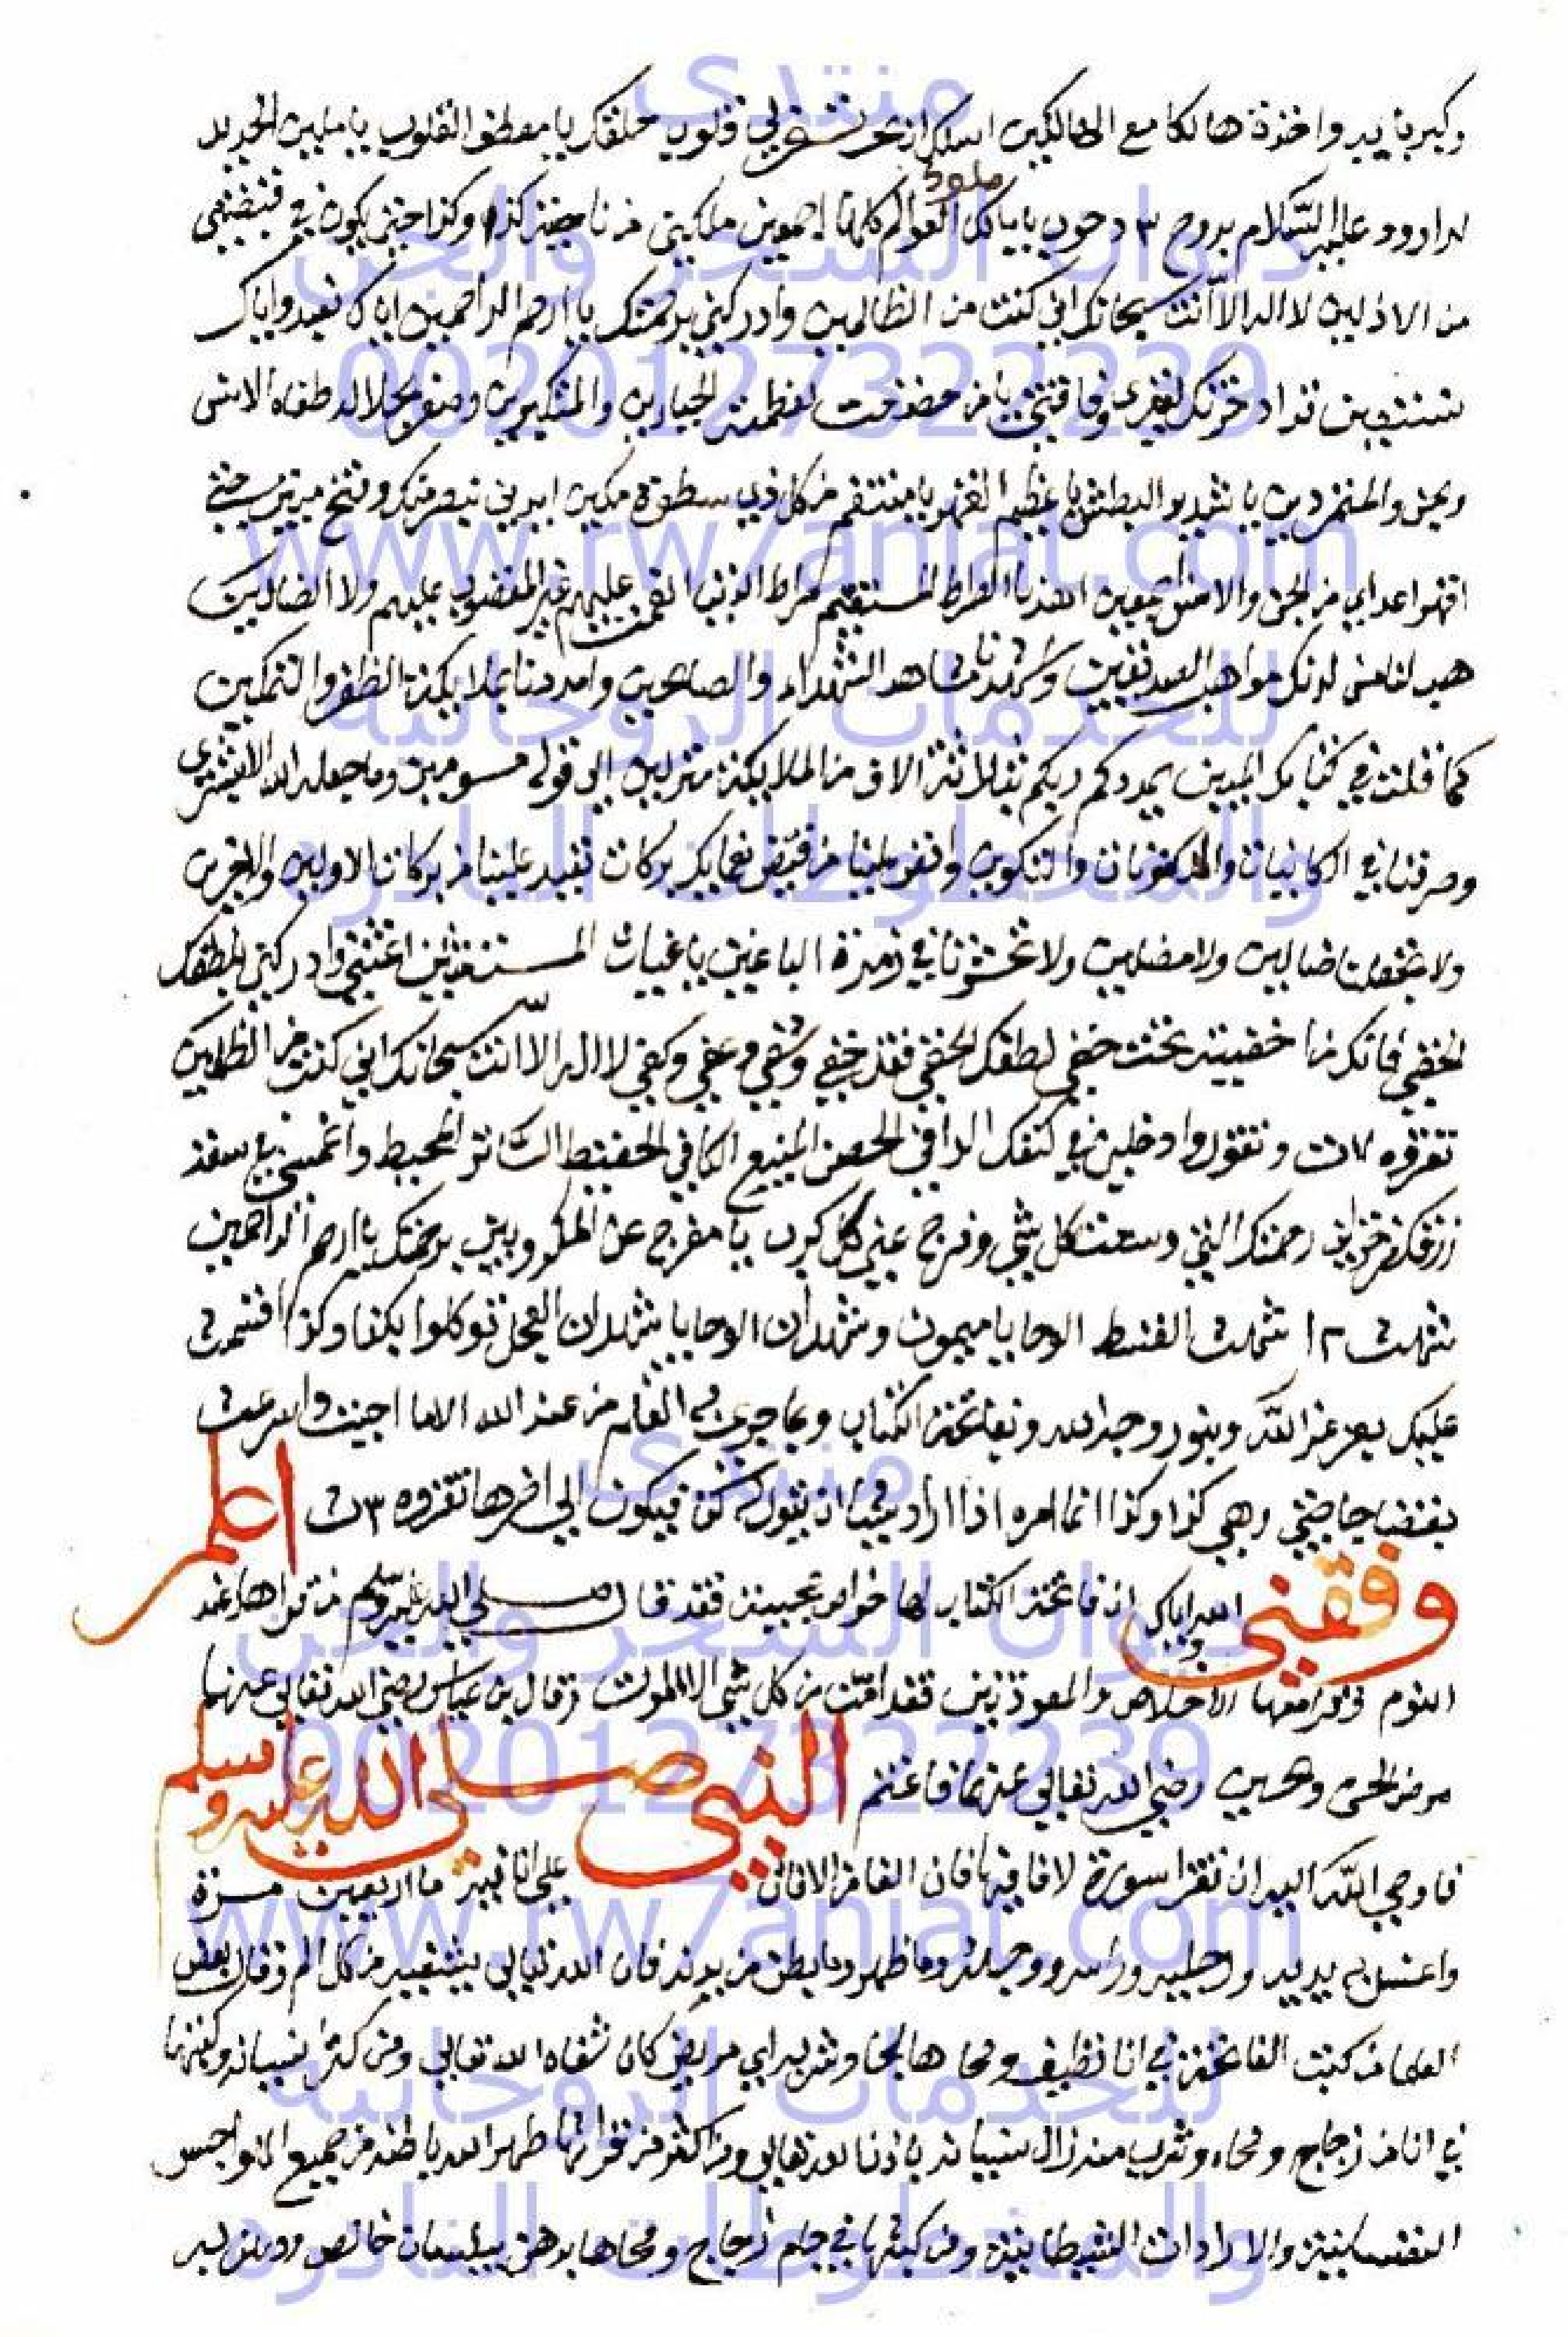 وكبرياؤه واخذة هالكا مع الهالكين اسالك ان تسخر لي قلوب خلقك يا معطف القلوب يا ملين الحديد
لداوود عليه السلام بروح ٣ دحوب يا مالك العوالم كلها اجمعين ملكني من ناصية كذا وكذا حتى يكون في قبضتي
من الاذلين لا اله الا انت سبحانك اني كنت من الظالمين وادركني برحمتك يا ارحم الراحمين اياك نعبد واياك
نستعين تدارك فقري وفاقتي يا من خضعت لعظمته الجبارين والمتكبرين وضعو بجلاله طغاة الانس
وجن والمتمردين يا شديد البطش يا عظيم القهر يا منتقم من كل ذي سطوة مكين ايدني بنصر منك وفتح مبين حتى
اقهر اعداي من الجن والانس اجمعين اهدنا الصراط المستقيم صراط الذين انعمت عليهم غير المغضوب عليهم ولا الضالين
هب لنا من لدنك مواهب الصديقين واشهدنا مشاهد الشهداء والصالحين وامددنا بملايكة الظفر والتمكين
كما قلت في كتابك المبين يمددكم ربكم بثلاثة الاف من الملايكة منزلين الى قوله مسومين وما جعله الله الا بشرى
وصرفنا في الكاينات والتكوين وافض علينا من فيض نعمايك بركات تفيد علينا من بركات الاولين والاخرين
ولا تجعلنا ضالين ولا مضلين ولا تحشرنا في زمرة الباغين يا غياث المستغيثين اغثني وادركني بلطفك
الخفي فانك من اخفيته تحت خفي لطفك الخفي فقد خفي وشفي وعفي وكفي لا اله الا انت سبحانك اني كنت من الظالمين
تقروه ٧ ت وتقول وادخلني في كنفك الوافي الحصن المنيع الكافي الحفيظ الساتر المحيط واغمسني في سعة
رزقك من خزاين رحمتك التي وسعت كل شي وفرج عني كل كرب يا مفرج عن المكروبين برحمتك يا ارحم الراحمين
شهلت ١٢ شهلت القسط الوحا يا ميمون وشهدان الوحا يا شهدان العجل توكلوا بكذا وكذا اقسمت
عليك بعز عز الله وبنور وجه الله وبفاتحة الكتاب وبما جرى به القلم من عند الله الا ما اجبت واسرعت
بقضا حاجتي وهي كذا وكذا انما امره اذا اراد شيئا ان يقول له كن فيكون الى اخرها تقروه ٣ ت اعلم
وفقني الله واياك ان فاتحة الكتاب لها خواص عجيبة فقد قال صلى الله عليه وسلم من قراها عند
النوم وقرا معها الاخلاص والمعوذتين فقد امن من كل شي الا الموت وقال بن عباس رضي الله تعالى عنهما
مرض الحسن وحسين رضي الله تعالى عنهما فاغتم النبي صلى الله عليه وسلم
فاوحي الله اليه ان تقرا سورة لا فا فيها فان الفا من الافات على انا فيه ما اربعين مرة
واغسل به يديه ورجليه وراسه ووجهه وما ظهر وما بطن من بدنه فان الله تعالى يشفيه من كل الم وقال بعض
العلما من كتب الفاتحة في انا نظيف ومحاها بما وشربه اي مريض كان شفاه الله تعالى ومن كثر نسيانه وكتبها
في انا من زجاج ومحاه وشرب منه زال نسيانه باذن الله تعالى ومن اكثر من قراتها طهر الله باطنه من جميع الهواجس
النفسانية والارادات الشيطانية ومن كتبها في جام زجاج ومحاها بدهن بيلسان خالص ودهن به
منتدى
ديوان السحر والجن
00201273222239
www.rw7aniat.com
للخدمات الروحانية
والمخطوطات النادره
منتدى
ديوان السحر والجن
00201273222239
www.rw7aniat.com
للخدمات الروحانية
والمخطوطات النادره